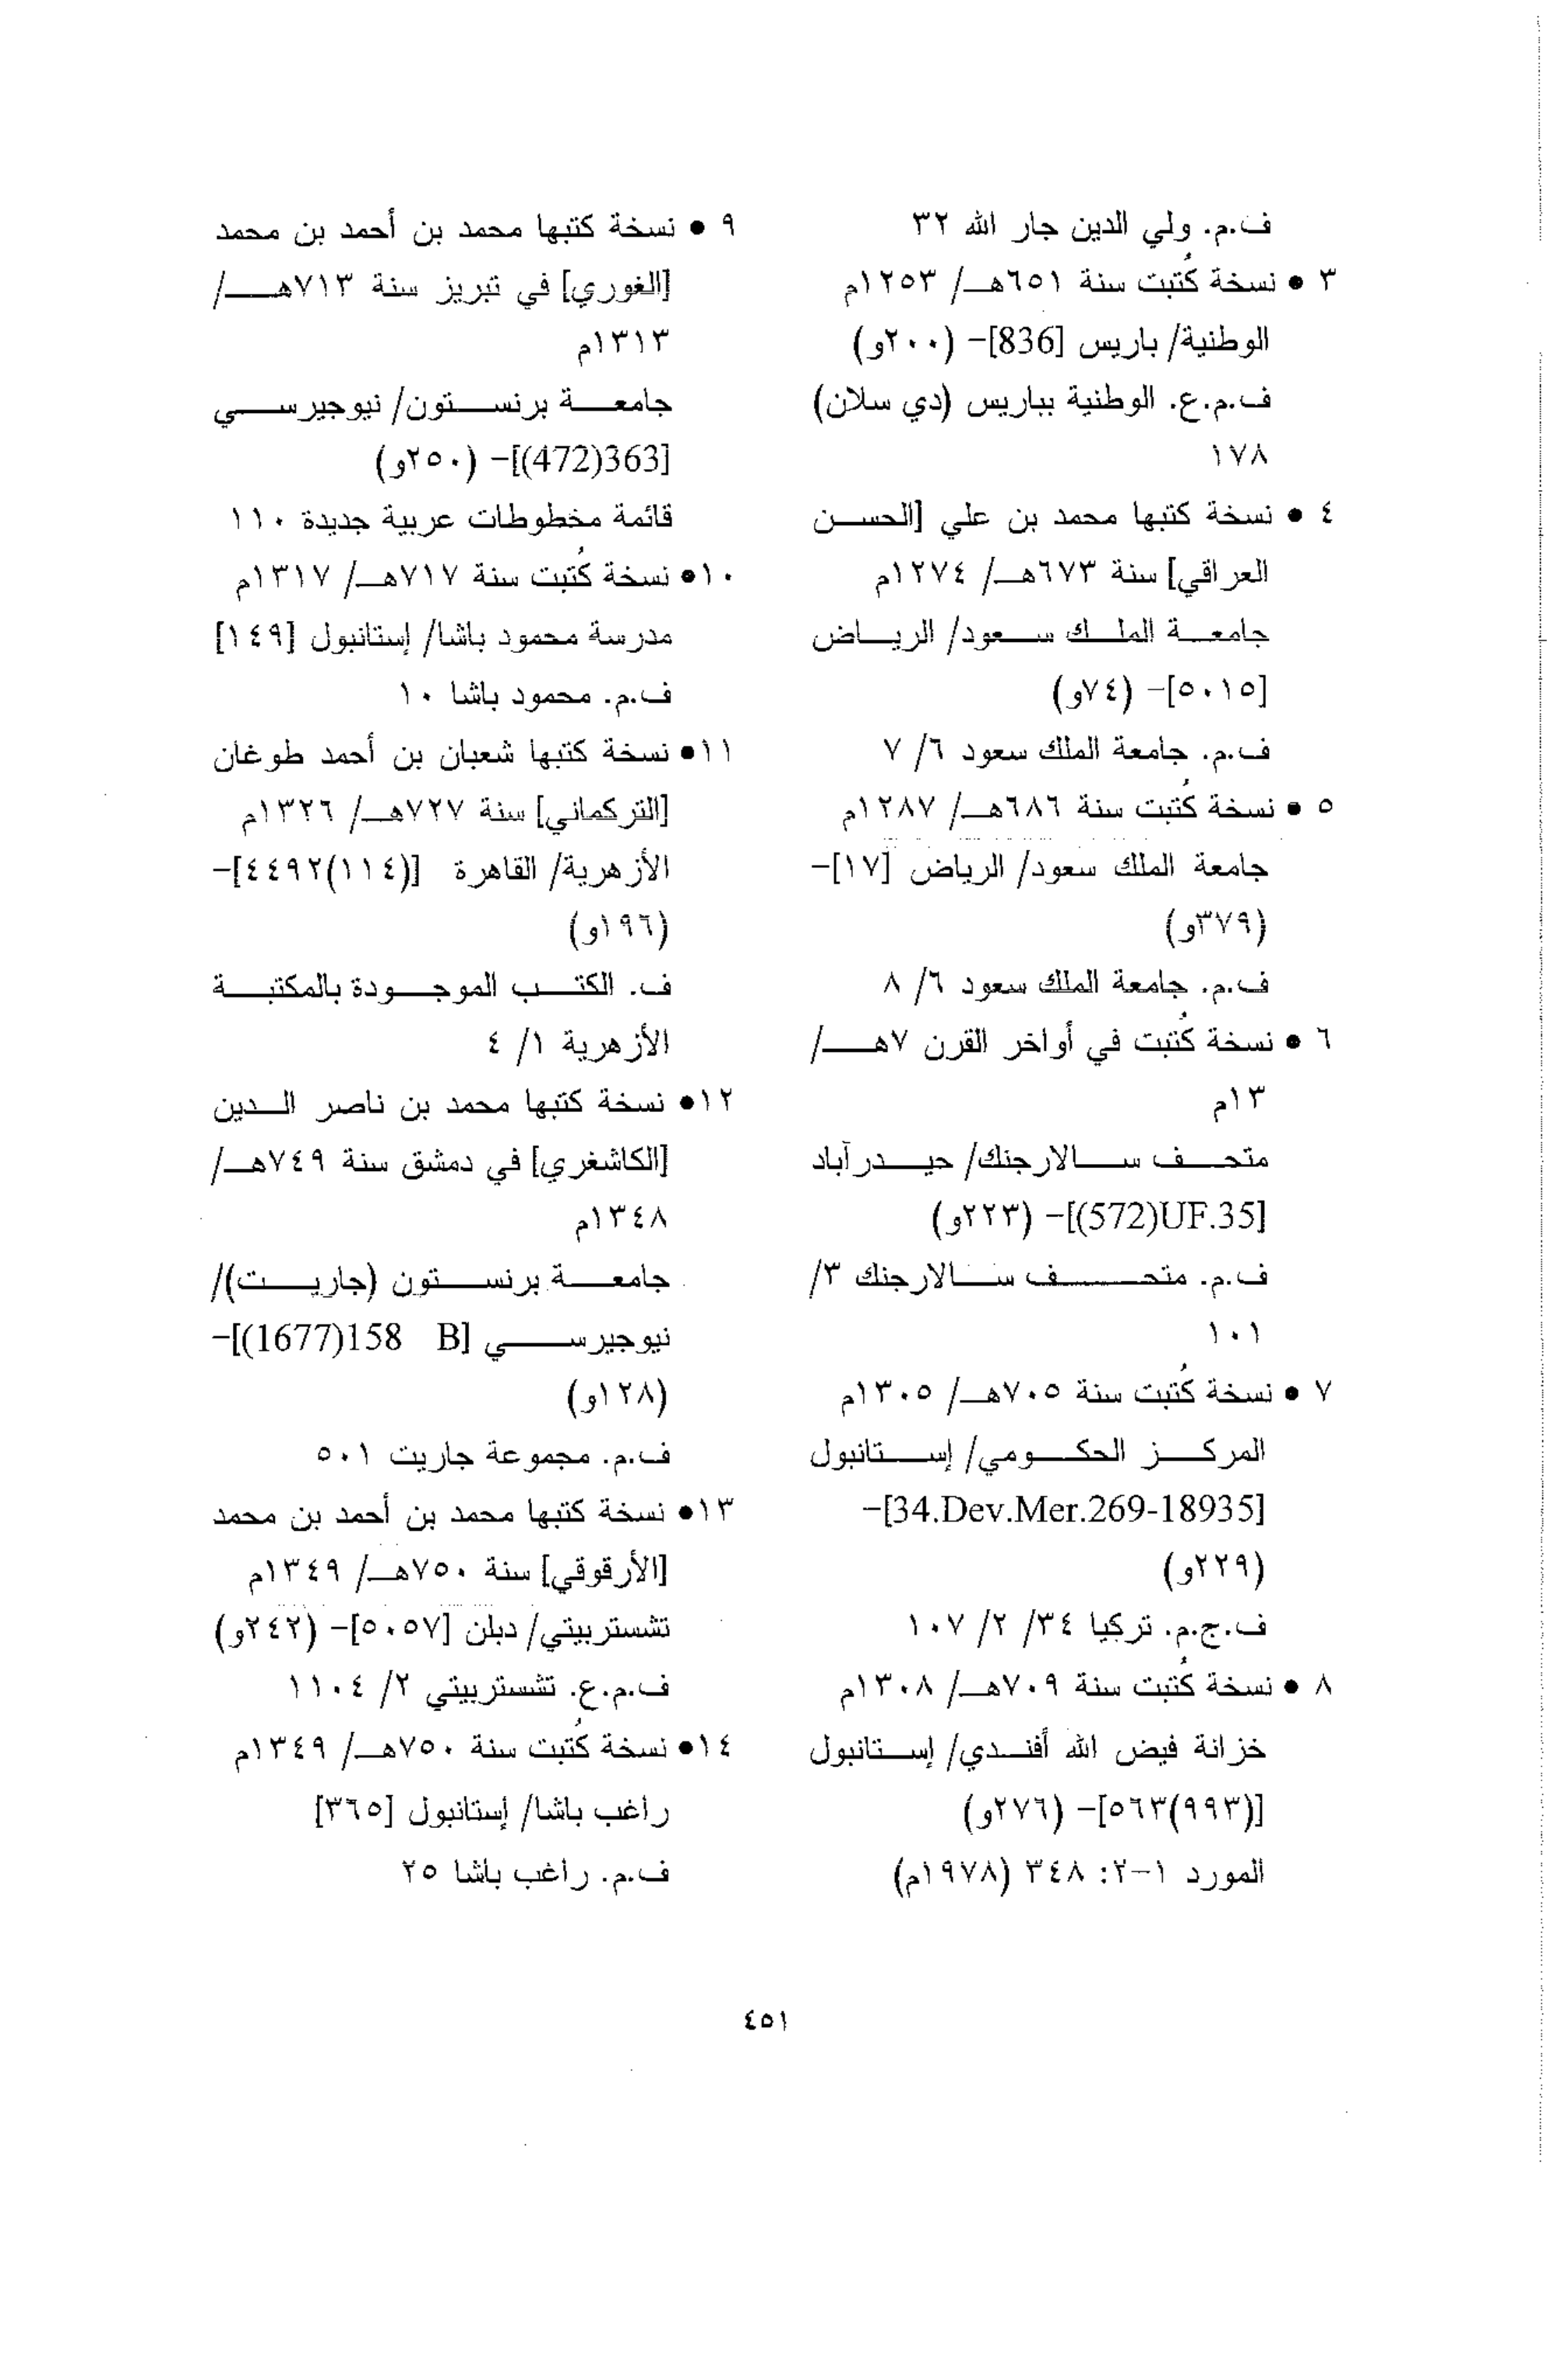 ف.م. ولي الدين جار الله ٣٢
٣ • نسخة كُتبت سنة ٦٥١هـ/ ١٢٥٣م
الوطنية/ باريس [836]- (٢٠٠و)
ف.م.ع. الوطنية بباريس (دي سلان)
١٧٨
٤ • نسخة كتبها محمد بن علي [الحسن
العراقي] سنة ٦٧٣هـ/ ١٢٧٤م
جامعة الملك سعود/ الرياض
[٥٠١٥]- (٧٤و)
ف.م. جامعة الملك سعود ٦/ ٧
٥ • نسخة كُتبت سنة ٦٨٦هـ/ ١٢٨٧م
جامعة الملك سعود/ الرياض [١٧]-
(٣٧٩و)
ف.م. جامعة الملك سعود ٦/ ٨
٦ • نسخة كُتبت في أواخر القرن ٧هـ/
١٣م
متحف سالارجنك/ حيدرآباد
[UF.35(572)]- (٢٢٣و)
ف.م. متحف سالارجنك ٣/
١٠١
٧ • نسخة كُتبت سنة ٧٠٥هـ/ ١٣٠٥م
المركز الحكومي/ إستانبول
[34.Dev.Mer.269-18935]-
(٢٢٩و)
ف.ج.م. تركيا ٣٤/ ٢/ ١٠٧
٨ • نسخة كُتبت سنة ٧٠٩هـ/ ١٣٠٨م
خزانة فيض الله أفندي/ إستانبول
[(٩٩٣)٥٦٣]- (٢٧٦و)
المورد ١-٢: ٣٤٨ (١٩٧٨م)
٩ • نسخة كتبها محمد بن أحمد بن محمد
[الغوري] في تبريز سنة ٧١٣هـ/
١٣١٣م
جامعة برنستون/ نيوجيرسي
[363(472)]- (٢٥٠و)
قائمة مخطوطات عربية جديدة ١١٠
١٠• نسخة كُتبت سنة ٧١٧هـ/ ١٣١٧م
مدرسة محمود باشا/ إستانبول [١٤٩]
ف.م. محمود باشا ١٠
١١• نسخة كتبها شعبان بن أحمد طوغان
[التركماني] سنة ٧٢٧هـ/ ١٣٢٦م
الأزهرية/ القاهرة [(١١٤)٤٤٩٢]-
(١٩٦و)
ف. الكتب الموجودة بالمكتبة
الأزهرية ١/ ٤
١٢• نسخة كتبها محمد بن ناصر الدين
[الكاشغري] في دمشق سنة ٧٤٩هـ/
١٣٤٨م
جامعة برنستون (جاريت)/
نيوجيرسي [158 B(1677)]-
(١٢٨و)
ف.م. مجموعة جاريت ٥٠١
١٣• نسخة كتبها محمد بن أحمد بن محمد
[الأرقوقي] سنة ٧٥٠هـ/ ١٣٤٩م
تشستربيتي/ دبلن [٥٠٥٧]- (٢٤٢و)
ف.م.ع. تشستربيتي ٢/ ١١٠٤
١٤• نسخة كُتبت سنة ٧٥٠هـ/ ١٣٤٩م
راغب باشا/ إستانبول [٣٦٥]
ف.م. راغب باشا ٢٥
٤٥١